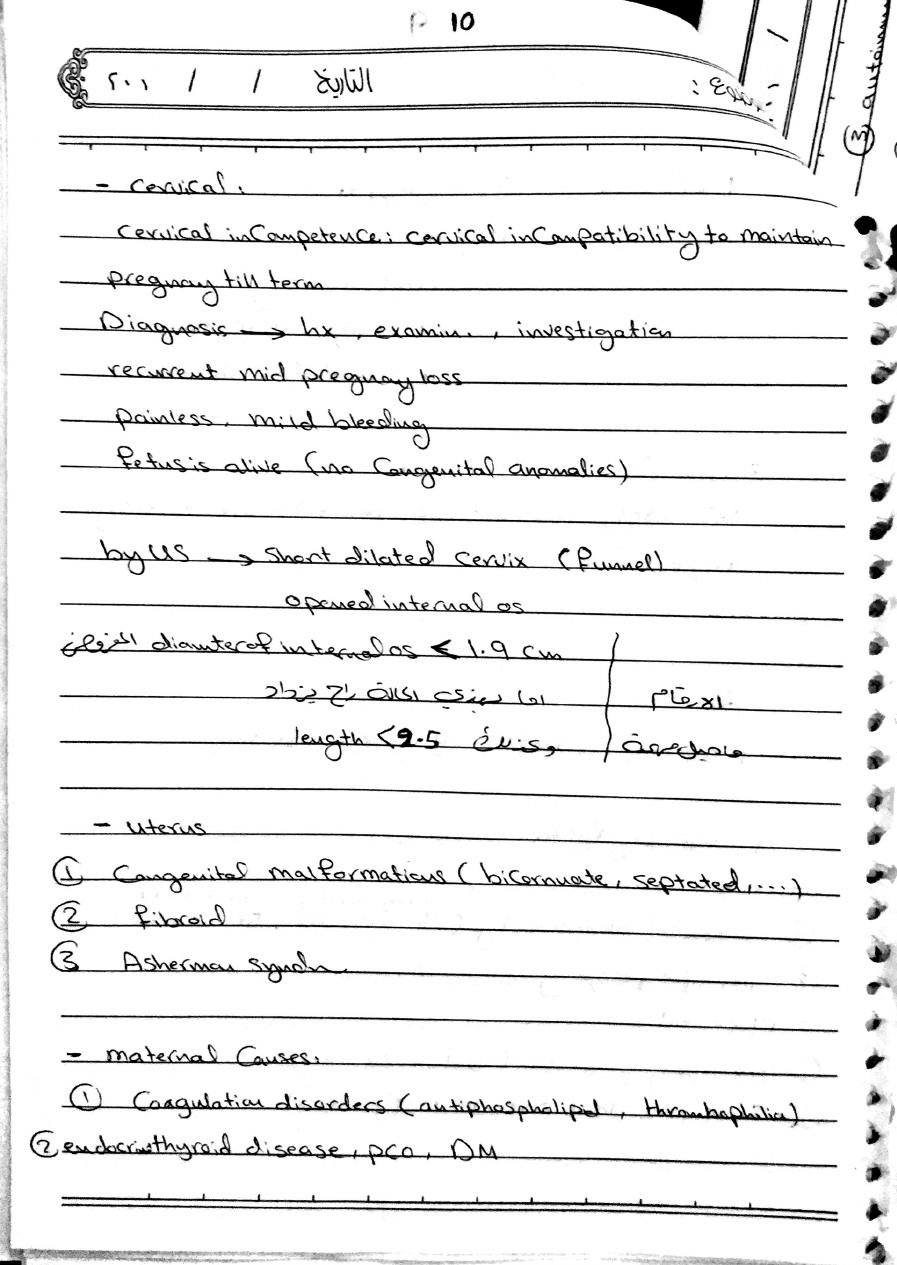 P 10
٢٠١ / / التاريخ
الموضوع :
/
③ autoimm
- Cervical:
Cervical inCompetence: cervical inCompatibility to maintain
pregnay till term
Diagnosis → hx, examin., investigation
recurrent mid pregnay loss
painless, mild bleeding
fetus is alive (no Congenital anomalies)
by US → Short dilated Cervix (funnel)
opened internal os
diamter of internal os < 1.9 cm
الارقام
length < 2.5 وكذلك
- uterus
① Congenital malformations (bicornuate, septated, ...)
② fibroid
③ Asherman syndr.
- maternal Causes:
① Coagulation disorders (antiphospholipid, thrombophilia)
② endocrin thyroid disease, pco, DM